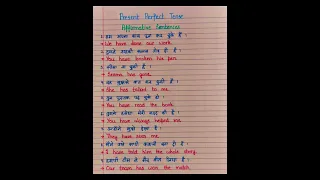 Present Perfect Tense
Affirmative Sentences
1. हम अपना काम पूरा कर चुके हैं ।
→ We have done our work.
2. तुमने उसकी कलम तोड़ दी है ।
→ You have broken his pen.
3. सीमा जा चुकी है ।
→ Seema has gone.
4. वह मुझसे बात कर चुकी है ।
→ She has talked to me.
5. तुम पुस्तक पढ़ चुके हो ।
→ You have read the book.
6. तुमने हमेशा मेरी मदद की है ।
→ You have always helped me.
7. उन्होंने मुझे देखा है ।
→ They have seen me.
8. मैंने उसे सारी कहानी बता दी है ।
→ I have told him the whole story.
9. हमारी टीम ने मैच जीत लिया है ।
→ Our team has won the match.